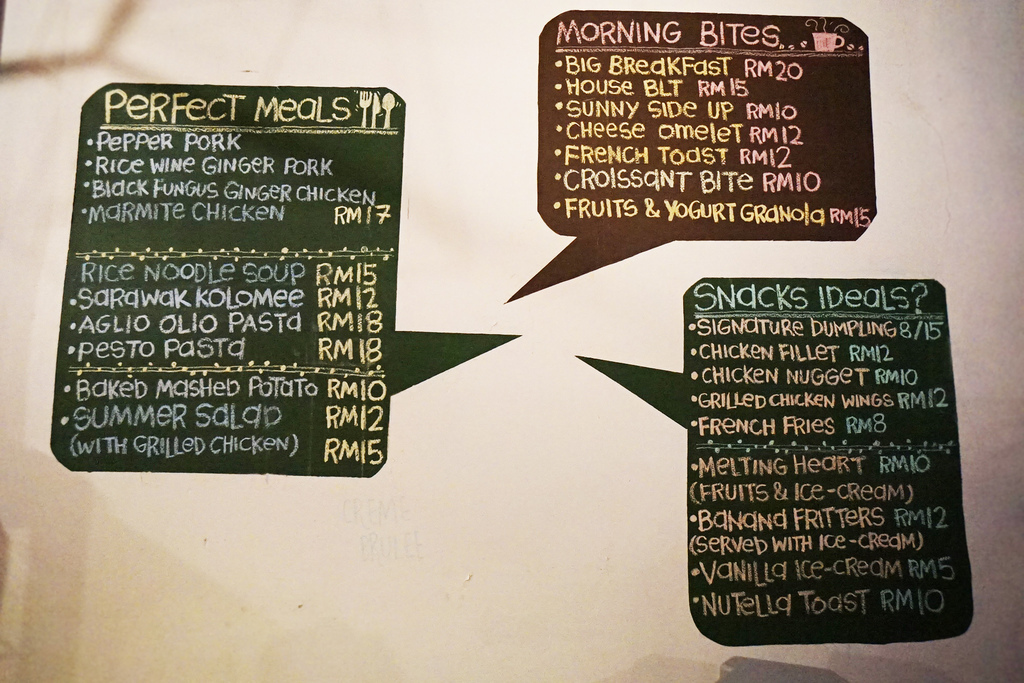 PERFECT MEALS
•PEPPER PORK
•RICE WINE GINGER PORK
•BLACK FUNGUS GINGER CHICKEN
•MARMITE CHICKEN RM17
RICE NOODLE SOUP RM15
•SARAWAK KOLOMEE RM12
•AGLIO OLIO PASTA RM18
•PESTO PASTA RM18
•BAKED MASHED POTATO RM10
•SUMMER SALAD RM12
(WITH GRILLED CHICKEN) RM15
MORNING BITES...
•BIG BREAKFAST RM20
•HOUSE BLT RM15
•SUNNY SIDE UP RM10
•CHEESE OMELET RM12
•FRENCH TOAST RM12
•CROISSANT BITE RM10
•FRUITS & YOGURT GRANOLA RM15
SNACKS IDEALS?
•SIGNATURE DUMPLING 8/15
•CHICKEN FILLET RM12
•CHICKEN NUGGET RM10
•GRILLED CHICKEN WINGS RM12
•FRENCH FRIES RM8
•MELTING HEART RM10
(FRUITS & ICE-CREAM)
•BANANA FRITTERS RM12
(SERVED WITH ICE-CREAM)
•VANILLA ICE-CREAM RM5
•NUTELLA TOAST RM10
CREME
BRULEE